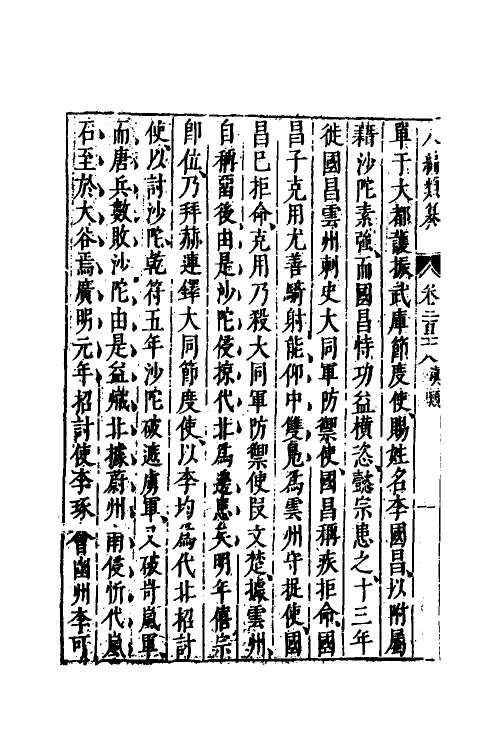 八編類纂 卷二百二八 演類 一
單于大都護振武庫節度使賜姓名李國昌以附屬
藉沙陀素強而國昌恃功益橫恣懿宗患之十三年
徙國昌雲州刺史大同軍防禦使國昌稱疾拒命國
昌子克用尤善騎射能仰中雙鳧爲雲州守捉使國
昌已拒命克用乃殺大同軍防禦使段文楚據雲州
自稱留後由是沙陀侵掠代北爲邊患矣明年僖宗
卽位乃拜赫連鐸大同節度使以李均爲代北招討
使以討沙陀乾符五年沙陀破遮虜軍又破岢嵐軍
而唐兵數敗沙陀由是益熾北據蔚州南侵忻代嵐
石至於大谷焉廣明元年招討使李琢會幽州李可